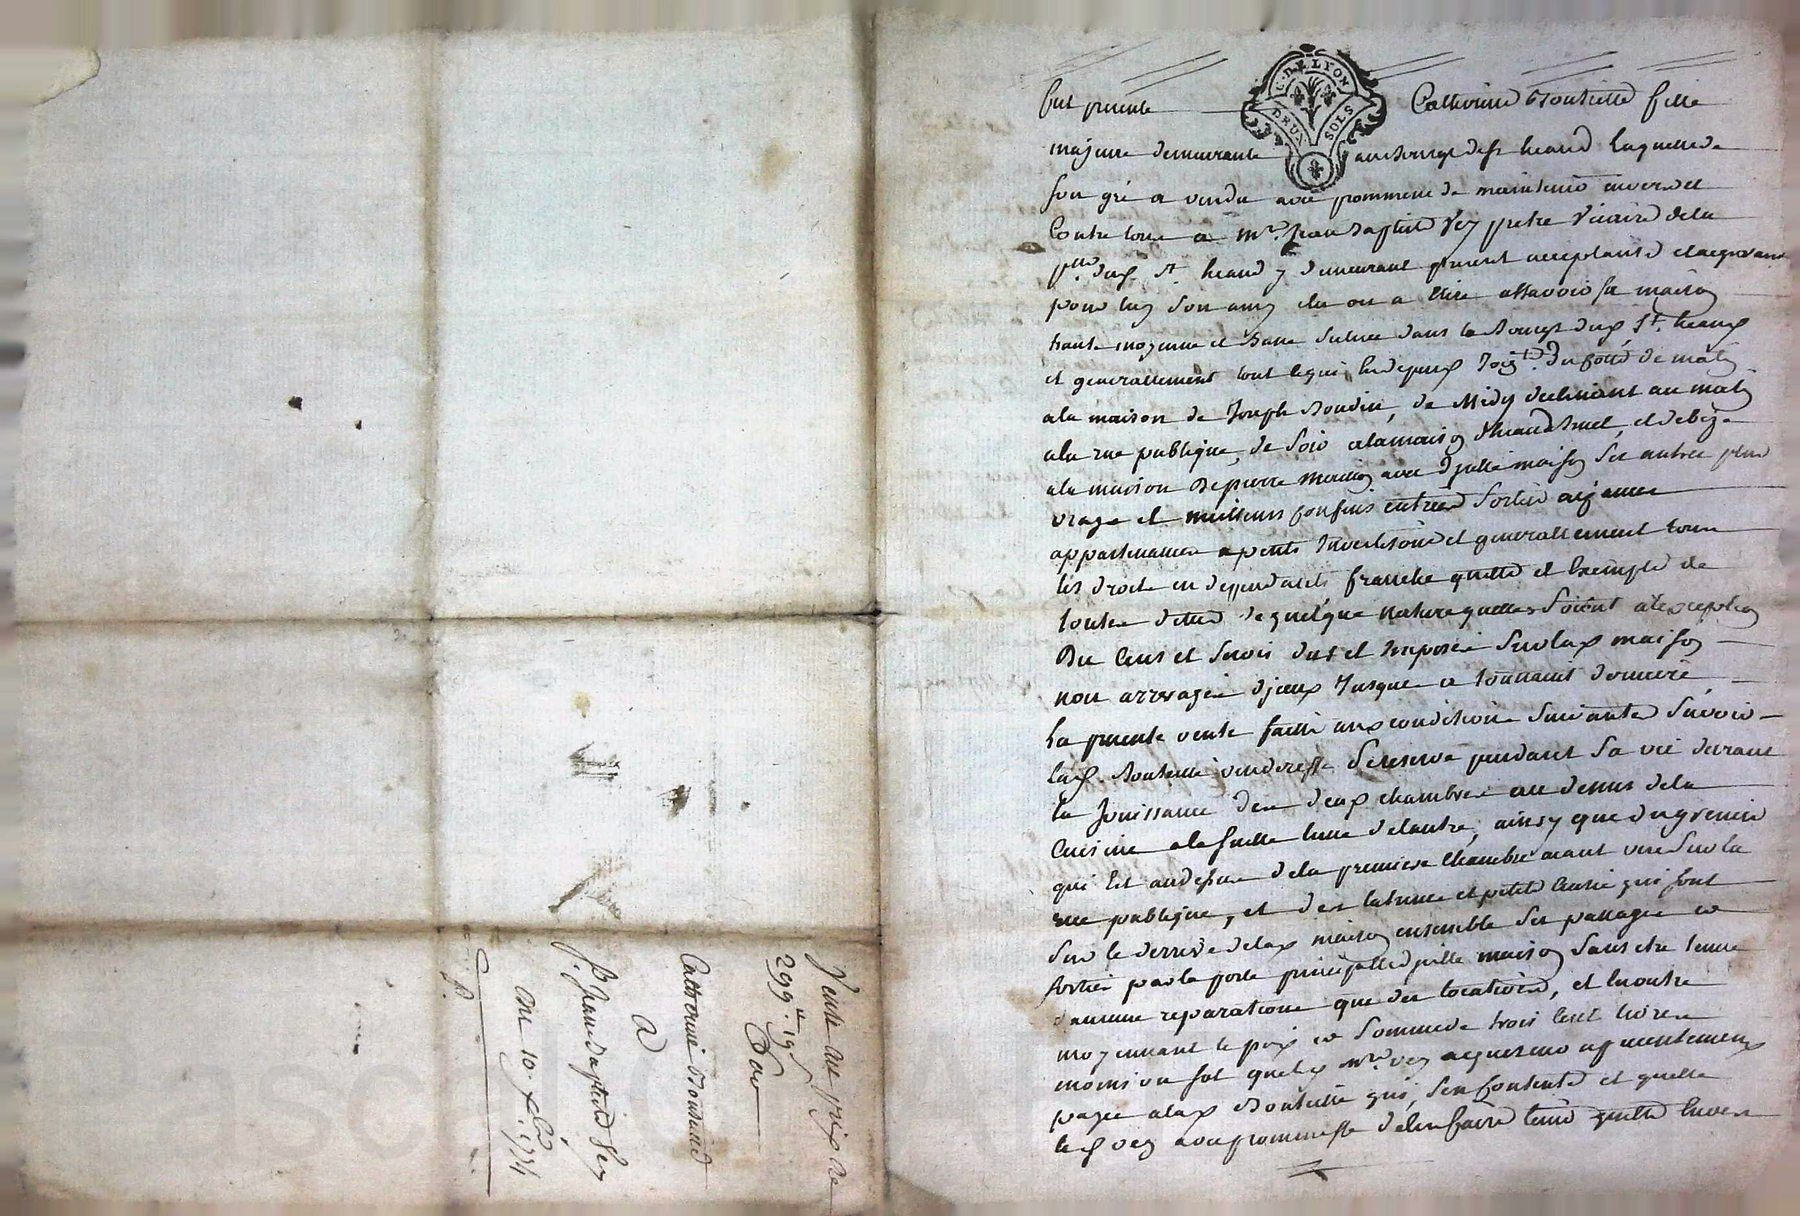 G. DE LYON
DEUX SOLS
fut presente Catherine Bouteille fille
majeure demeurante au bourg de St heand laquelle de
son gré a vendu avec promesse de maintenir envers et
Contre tous a Mre. Jean Baptiste Vey pretre Vicaire de la
psse dud. St heand y demeurant present acceptant et acquerant
pour luy son amy elu ou a elire assavoir sa maison
haute moyenne et basse située dans le Bourg dud. St. heand
et generallement tout ce qui en depend Joigt. du Cotté de matin
a la maison de Joseph Boudin, de Midy declinant au matin
a la rue publique, de soir a la maison et de bize
a la maison de pierre avec d'jcelle maison ses autres plus
vrays et meilleurs Confins entrées sorties aizances
appartenances apents et generallement tous
les droits en dependants franche quitte et Exempte de
toutes dettes de quelque nature quelles soient a l'exception
Du Cens et servis dus et imposés sur lad. maison
non arreragés d'jceux Jusques a toussaint derniere
La presente vente faitte aux conditions suivantes savoir
lad. Bouteille venderesse se reserve pendant sa vie durant
la Jouissance des deux chambres au dessus de la
Cuisine a la suitte lune de lautre, ainsy que du grenier
qui Est au dessus de la premiere Chambre aiant vue sur la
rue publique, et des latrines et petite qui sont
sur le derriere de lad. maison ensemble ses passages et
sorties par la porte principalle d'jcelle maison sans etre tenue
d'aucune reparations que des locatives, et En outre
moyennant le prix et somme de trois Cent livres
moins un sol que led. Mre. Vey acquereur a presentement
payée a lad. Bouteille qui, s'en Contente et quitte
led. Vey avec promesse de l'en faire tenir quitte Envers
Vente au prix de
299.ll 19s
Par
Catherine Bouteille
A
Sr. Jean Baptiste Vey
Du 10. xbre. 1774